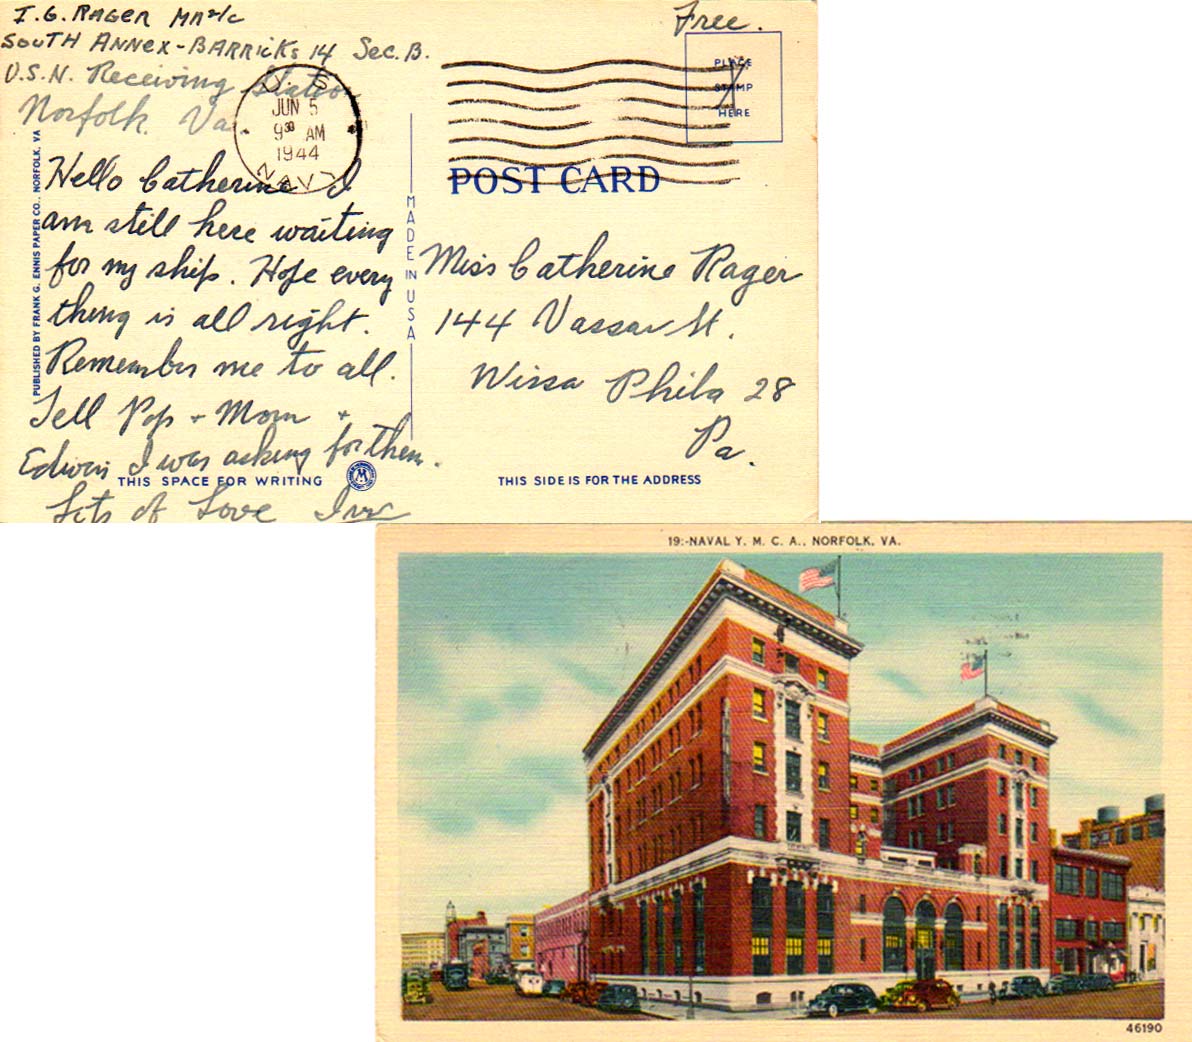 I. G. RAGER MM 2/C
SOUTH ANNEX - BARRICKS 14 Sec. B.
U.S.N. Receiving Station
Norfolk. Va.
Free.
PLACE
STAMP
HERE
U. S.
JUN 5
9 30 AM
1944
NAVY
POST CARD
Hello Catherine I
am still here waiting
for my ship. Hope every
thing is all right.
Remember me to all.
Tell Pop + Mom +
Edwin I was asking for them.
Lots of Love Irv
PUBLISHED BY FRANK G. ENNIS PAPER CO., NORFOLK, VA
MADE IN USA
Miss Catherine Rager
144 Vassar St.
Wissa Phila 28
Pa.
THIS SPACE FOR WRITING
M
THIS SIDE IS FOR THE ADDRESS
19:-NAVAL Y. M. C. A., NORFOLK, VA.
46190